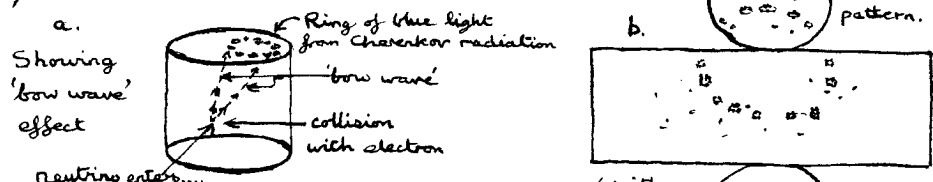 a.
Showing
'bow wave'
effect
Ring of blue light
from Charenkov radiation
'bow wave'
collision
with electron
neutrino enters
b.
pattern.